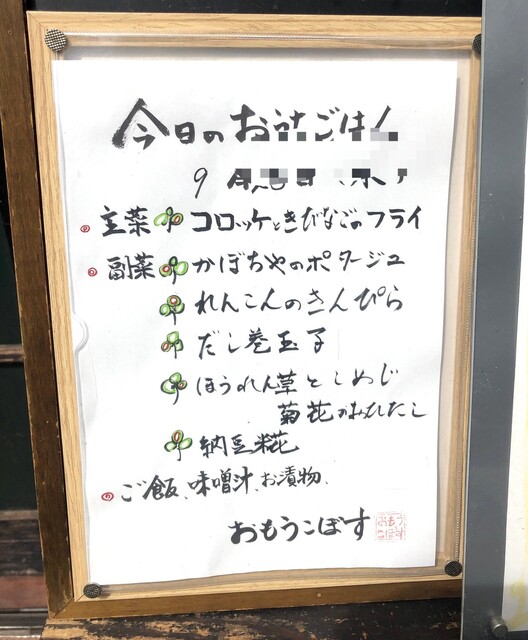 今日のおうちごはん
9月
主菜 コロッケときびなごのフライ
副菜 かぼちゃのポタージュ
れんこんのきんぴら
だし巻玉子
ほうれん草としめじ
菊花のおひたし
納豆糀
ご飯、味噌汁、お漬物、
おもうこぼす
おもう
こぼす